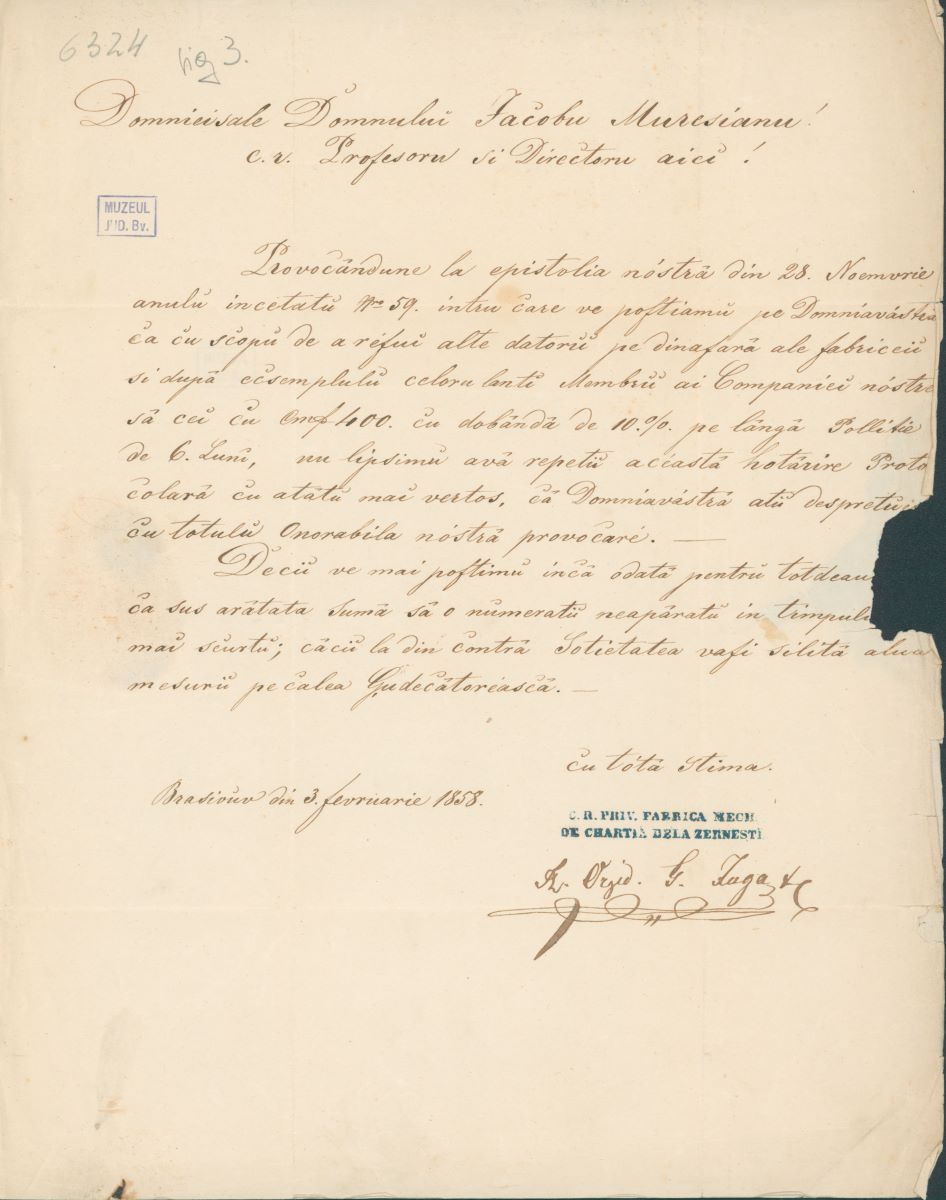 6324
fig 3.
Domnieisale Domnului Jacobu Muresianu!
c. r. Profesoru si Directoru aici!
MUZEUL
JUD. Bv.
Provocăndune la epistolia nóstră din 28. Noemvrie
anulu incetatu No 59. intru care ve poftiamu pe Domniavástră
ca cu scopu de a réfui alte datorii pe dinafară ale fabriceiu
si după ecsemplulu celoru lanti Membrii ai Companiei nóstre
să cei cu Cmf 400. cu dobăndă de 10.%. pe lăngă Pollitie
de 6. Luni, nu lipsimu avă repetii această hotărire Proto
colară cu atătu mai vertos, că Domniavástră atu despretuit
cu totulu Onorabila nóstră provocare. —
Deciu ve mai poftimu incă odată pentru totdeau
ca sus arătata sumă să o numeratu neapăratu in timpulu
mai scurtu; căciu la din contră Sotietatea vafi silită alua
mesurii pe calea Gudecătoréască. —
cu tótă stima.
Brasiovu din 3. fevruarie 1858.
C. R. PRIV. FABRICA MECH.
DE CHARTIE DELA ZERNESTI
G. Juga